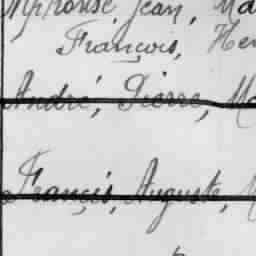 Alphonse, Jean, Ma
François, Hen
André, Pierre, Ma
Francis, Auguste,